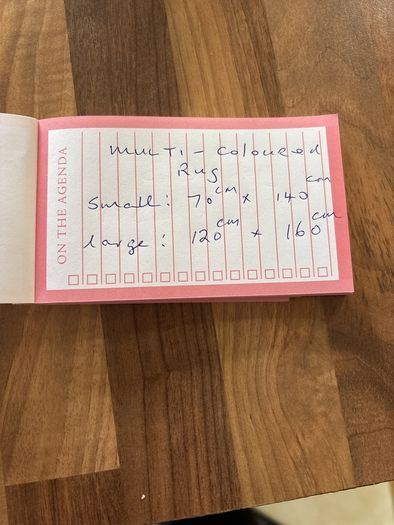 ON THE AGENDA
MULTI - coloured
Rug
Small: 70cm x 140cm
large: 120cm x 160cm